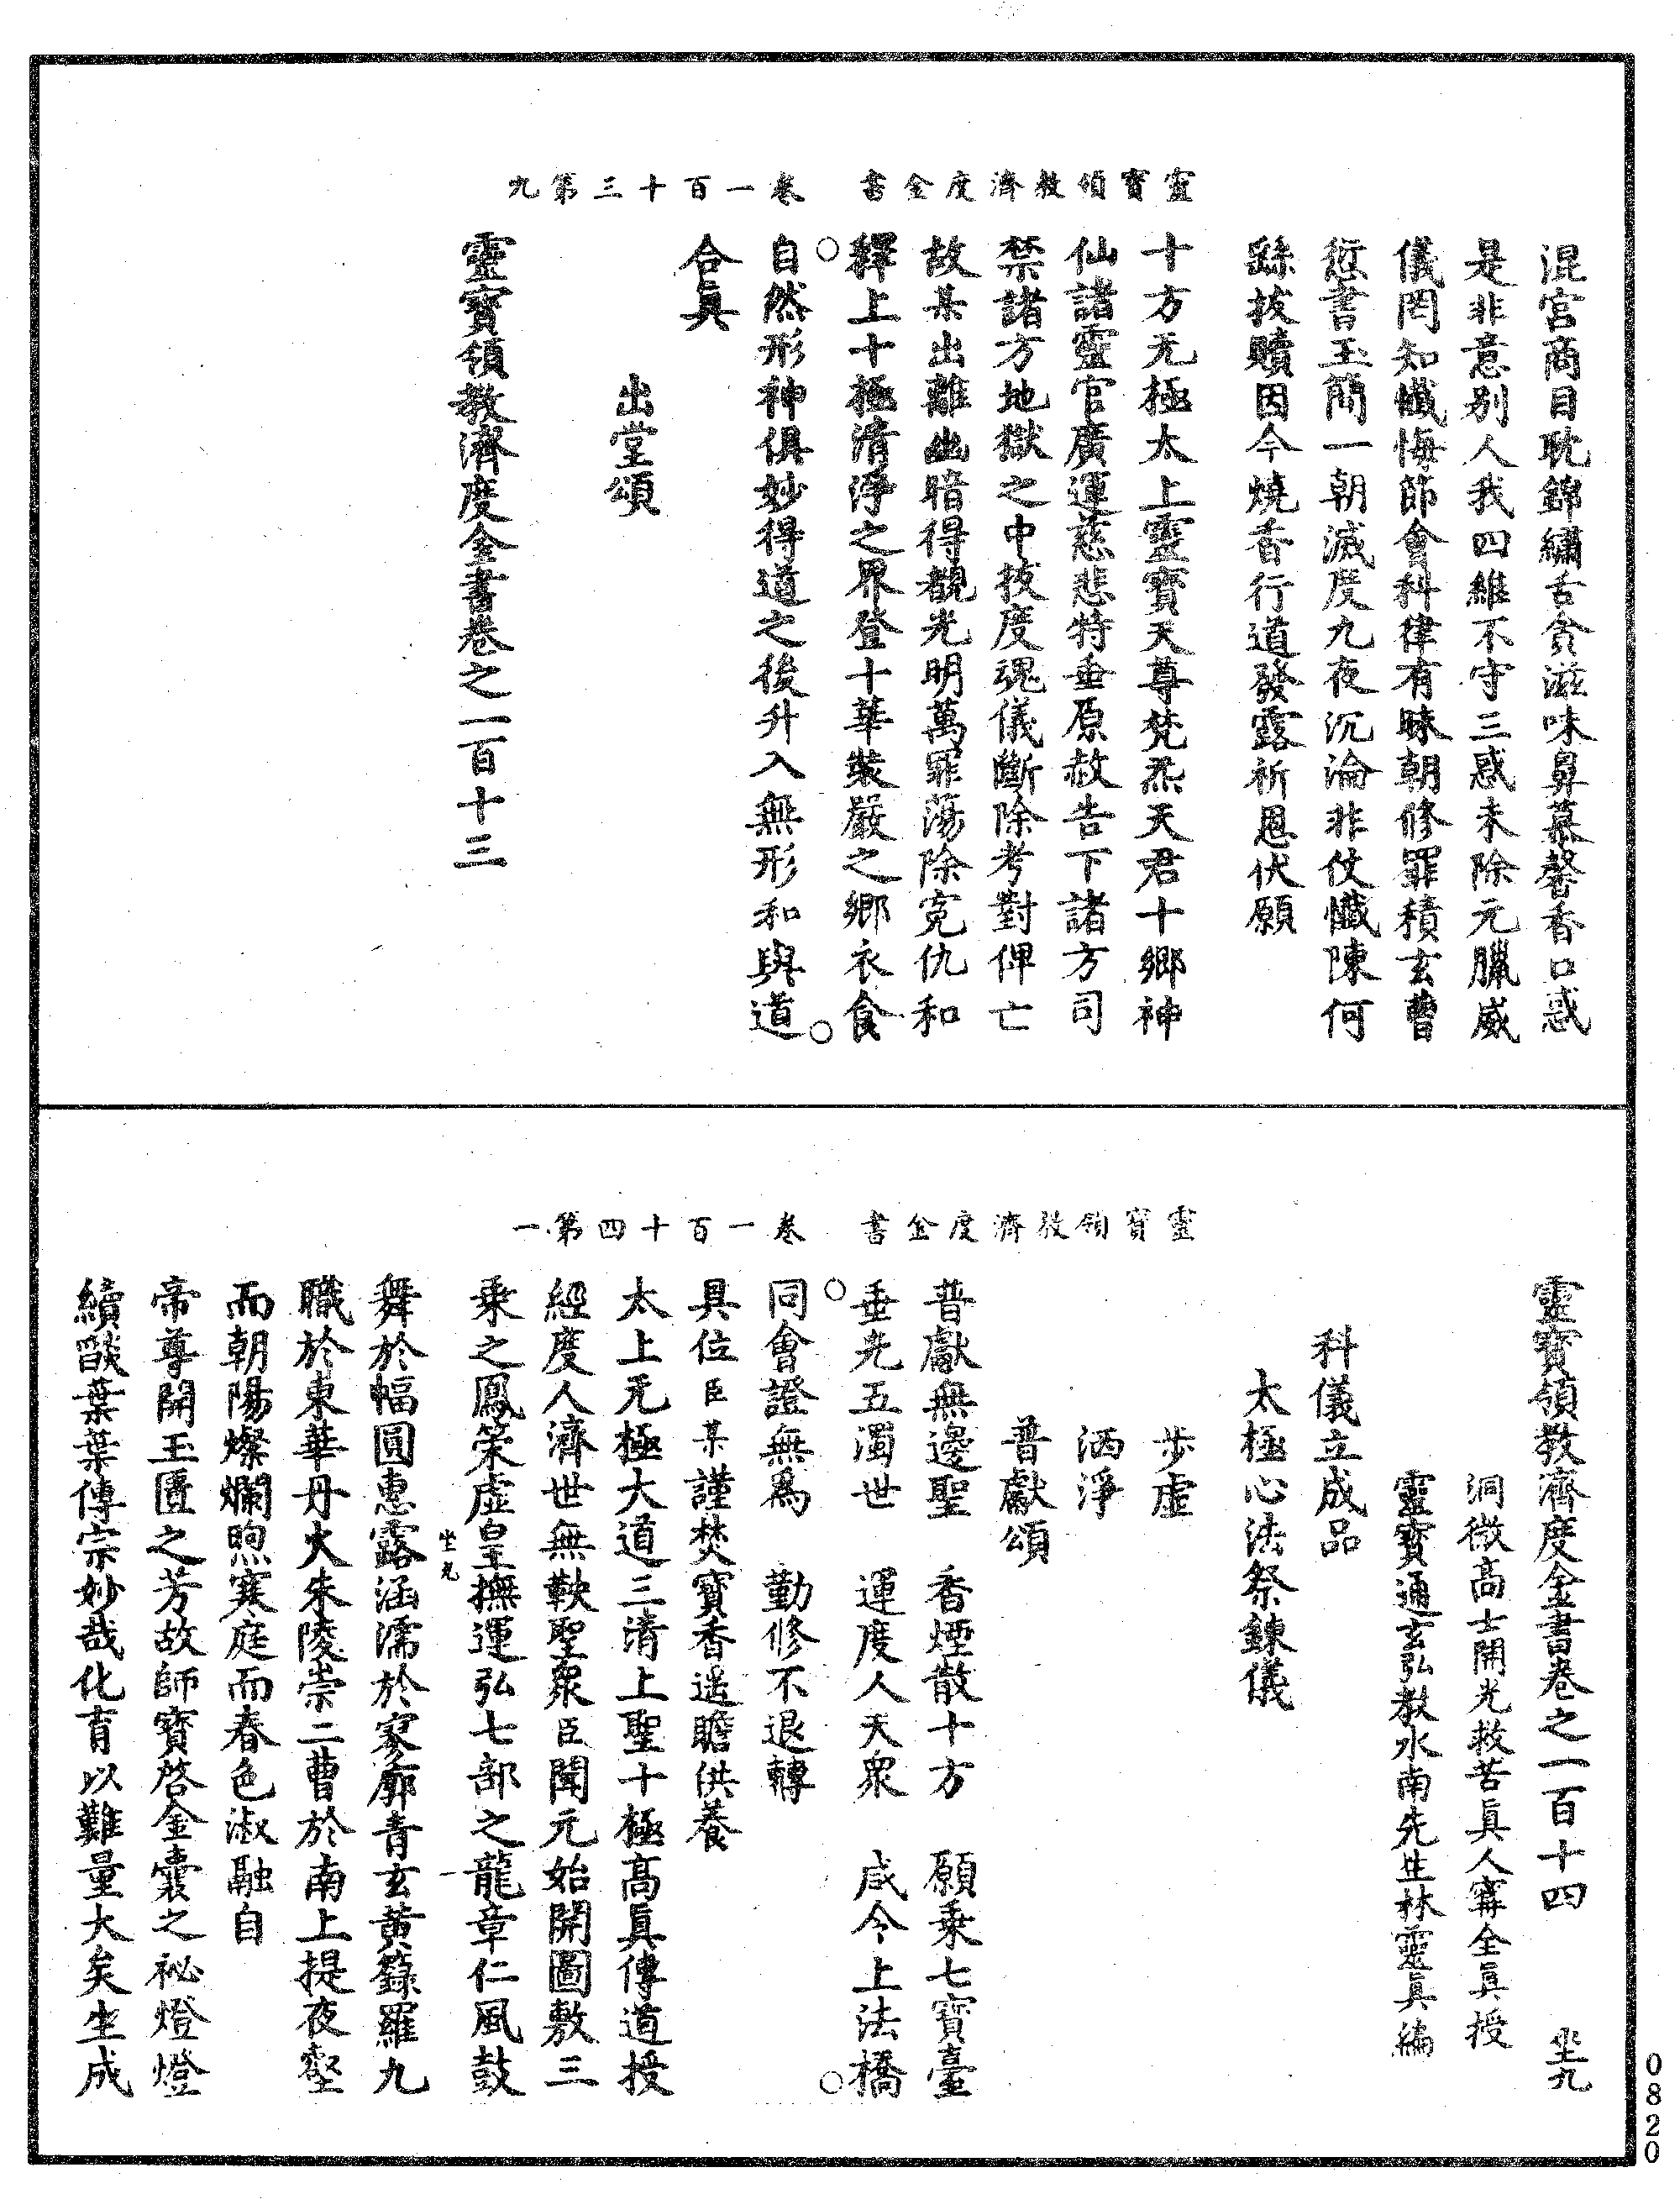 靈寶領教濟度金書　卷一百十三第九
混宮商目耽錦繡舌貪滋味鼻慕馨香口惑
是非意別人我四維不守三惑未除元臘威
儀罔知懺悔節會科律有昧朝修罪積玄曹
愆書玉簡一朝滅度九夜沉淪非仗懺陳何
繇拔贖因今燒香行道發露祈恩伏願
十方无極太上靈寶天尊梵炁天君十鄉神
仙諸靈官廣運慈悲特垂原赦告下諸方司
禁諸方地獄之中拔度魂儀斷除考對俾亡
故某出離幽暗得覩光明萬罪蕩除寃仇和
釋上十極清淨之界登十華裝嚴之鄉衣食
○自然形神俱妙得道之後升入無形和與道○
合眞
出堂頌
靈寶領教濟度金書卷之一百十三
靈寶領教濟度金書　卷一百十四第一
靈寶領教濟度金書卷之一百十四　坐九
洞微高士開光救苦眞人寗全眞授
靈寶通玄弘教水南先生林靈眞編
科儀立成品
太極心法祭鍊儀
步虛
洒淨
普獻頌
普獻無邊聖　香煙散十方　願乗七寶臺
垂光五濁世　運度人天眾　咸今上法橋
○同會證無爲　勤修不退轉○
具位臣某謹焚寶香遥瞻供養
太上无極大道三清上聖十極高眞傳道授
經度人濟世無鞅聖眾臣聞元始開圖敷三
乗之鳳笈虛皇撫運弘七部之龍章仁風鼓
舞於幅圓惠露涵濡於寥廓青玄黄籙羅九
坐九
職於東華丹火朱陵崇二曹於南上提夜壑
而朝陽燦爛煦寒庭而春色淑融自
帝尊開玉匱之芳故師寶啓金囊之祕燈燈
續燄葉葉傳宗妙哉化育以難量大矣生成
0820